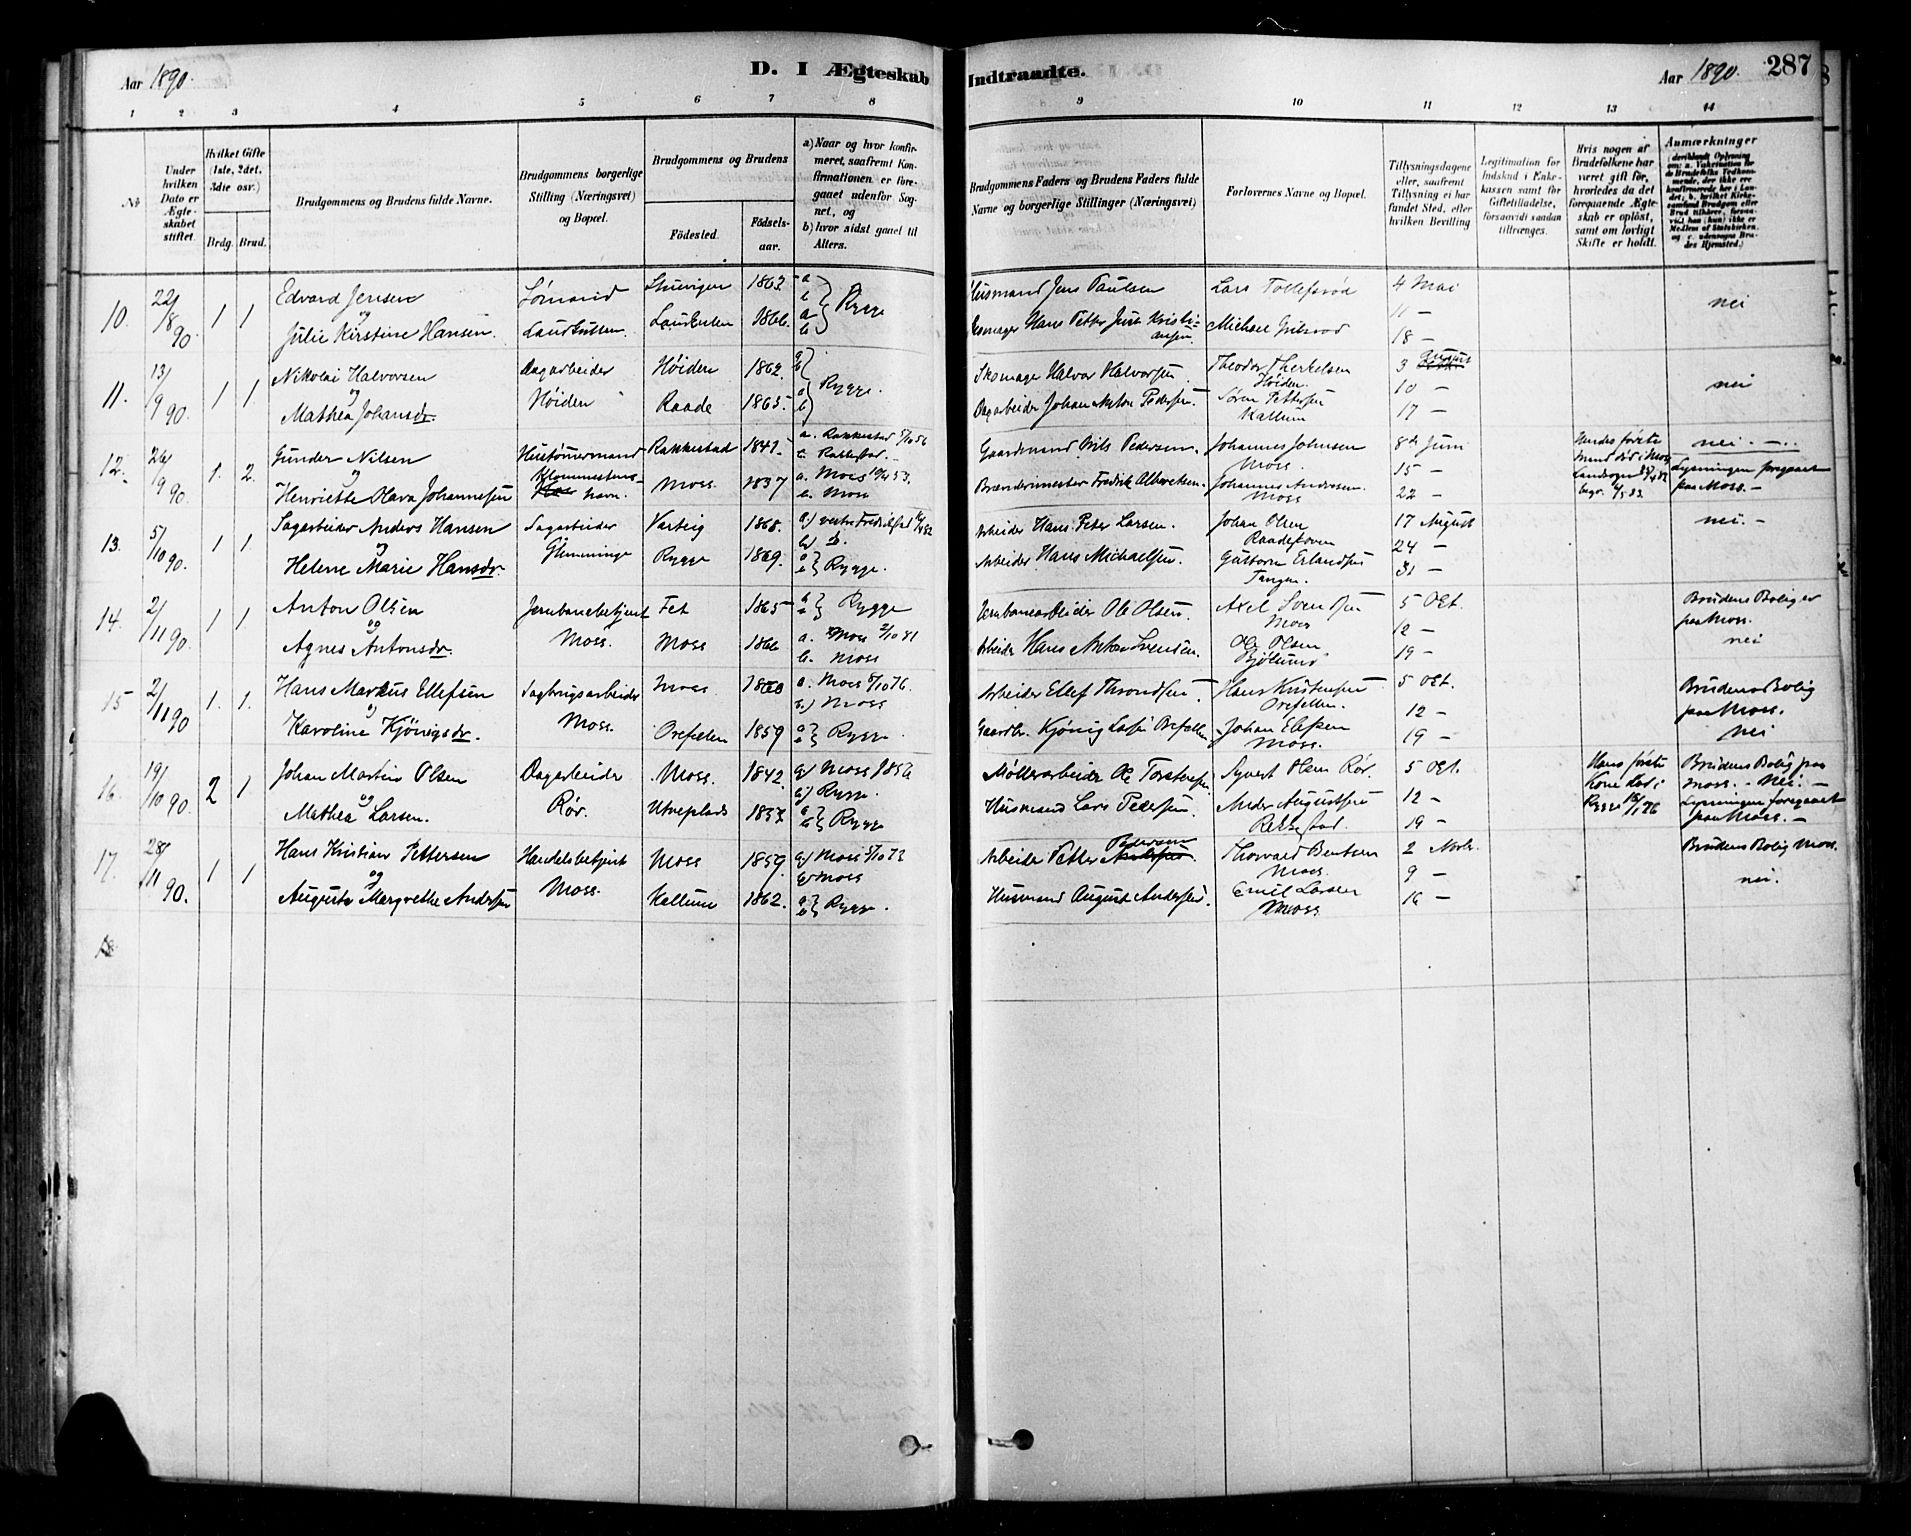 Aar 1890.
D. I Ægteskab Indtraadte.
Aar 1890. 287
1 2 3 4 5 6 7 8 9 10 11 12 13 14
No
Under hvilken Dato er Ægteskabet stiftet.
Hvilket Gifte (1ste, 2det, 3die osv.)
Brdg. Brud.
Brudgommens og Brudens fulde Navne.
Brudgommens borgerlige Stilling (Næringsvei) og Bopæl.
Brudgommens og Brudens
Födested. Födselsaar.
a) Naar og hvor konfirmeret, saafremt Konfirmationen er foregaaet udenfor Sognet, og
b) hvor sidst gaaet til Alters.
Brudgommens Faders og Brudens Faders fulde Navne og borgerlige Stillinger (Næringsvei)
Forlovernes Navne og Bopæl.
Tillysningsdagene eller, saafremt Tillysning ei har fundet Sted, efter hvilken Bevilling
Legitimation for Indskud i Enkekassen samt for Giftetilladelse, forsaavidt saadan tiltrænges.
Hvis nogen af Brudefolkene har været gift för, hvorledes da det foregaaende Ægteskab er oplöst, samt om lovligt Skifte er holdt.
Anmærkninger
10. 22/8 90 1 1 Edvard Jensen Sömand 1863 a Husmand Jens Paulsen Lars Tollefsrød 4 Mai
og b Rygge 11 - nei
Julie Kirstine Hansen. 1866. a b Skomager Hans Petter Just Kristiansen Michael 18 -
11. 13/9 90. 1 1. Nikolai Halvorsen Dagarbeider Höiden 1862. a b Skomager Halvor Halvorsen Theodor Therkelsen 3 August
og Rygge. Höiden. 10 - nei
Mathea Johansdr. Höiden Raade 1865. a b Dagarbeider Johan Anton Pedersen. Søren Pettersen 17 -
Kallum
12. 26/9 90 1. 2. Gunder Nilsen Hustømermand Rakkestad 1841 a. Rakkestad 5/10 56 Gaardmand Nils Pedersen. Johannes Johnsen 8de Juni Hendes første nei. -
og b. Rakkestad. Moss. 15 - Mand død i Moss Lysningen foregaaet
Henriette Olava Johannesen havn. Moss. 1837 a. Moss 10/4 53. Brænderimester Fredrik Albretsen. Johannes Andresen 22 - Landsogn paa Moss. -
b. Moss Moss begr. 4/5 83
13. 5/10 90. 1 1. Sagarbeider Anders Hansen Sagarbeider Varteig 1868. a) vestre Fredrikstad Arbeider Hans Peter Larsen. Johan Olsen 17 August nei. -
og b) do. Raadeskoven 24 -
Helene Marie Hansdr. Glemminge Rygge 1869. a b Rygge. Arbeider Hans Michaelsen. Guttorm Erlandsen 31 -
Tangen.
14. 2/11 90. 1 1. Anton Olsen Jernbanebetjent Fet 1865 a b Rygge Jernbanearbeider Ole Olsen. Axel Svendsen 5 Oct. Brudens Bolig er
og Moss 12 - paa Moss.
Agnes Antonsdr. Moss. Moss 1866 a. Moss 2/10 81 Arbeider Hans Anton Svensen. Ole Olsen 19 - nei
b. Moss
15 2/11 90 1. 1. Hans Markus Ellefsen Sagbrugsarbeider Moss. 1860 a. Moss 8/10 76. Arbeider Ellef Throndsen. Hans Kristensen 5 Oct. Brudens Bolig
og b) Moss Orefellen. 12 - paa Moss.
Karoline Kjönigsdr. Moss. Orefellen 1859 a b Rygge. Gaardbr. Kjönig Larsen Orefellen. Johan 19 - nei
Moss.
16. 19/10 90. 2 1 Johan Martin Olsen Dagarbeider Moss. 1842. a) Moss 1856 Möllerarbeider Ole Torstensen Syvert Olsen Rör. 5 Oct. Hans første Brudens Bolig paa
og b) Rygge. 12 - Kone død i Moss. - Nei. -
Mathea Larsen. Rör. 1857 a b Rygge Husmand Lars Pedersen. Anders Augustsen 19 - Rygge 76 Lysningen foregaaet
paa Moss. -
17. 28/11 90. 1 1 Hans Kristian Pettersen Handelsbetjent Moss 1859. a) Moss 5/10 73 Arbeider Petter Pedersen Thorvald Bentsen 2 Novbr. Brudens Bolig Moss.
og b) Moss Moss. 9 - nei.
Augusta Margrethe Andersen Moss. Kallum 1862. a b Rygge. Husmand August Andersen. Emil Larsen 16 -
Moss
18